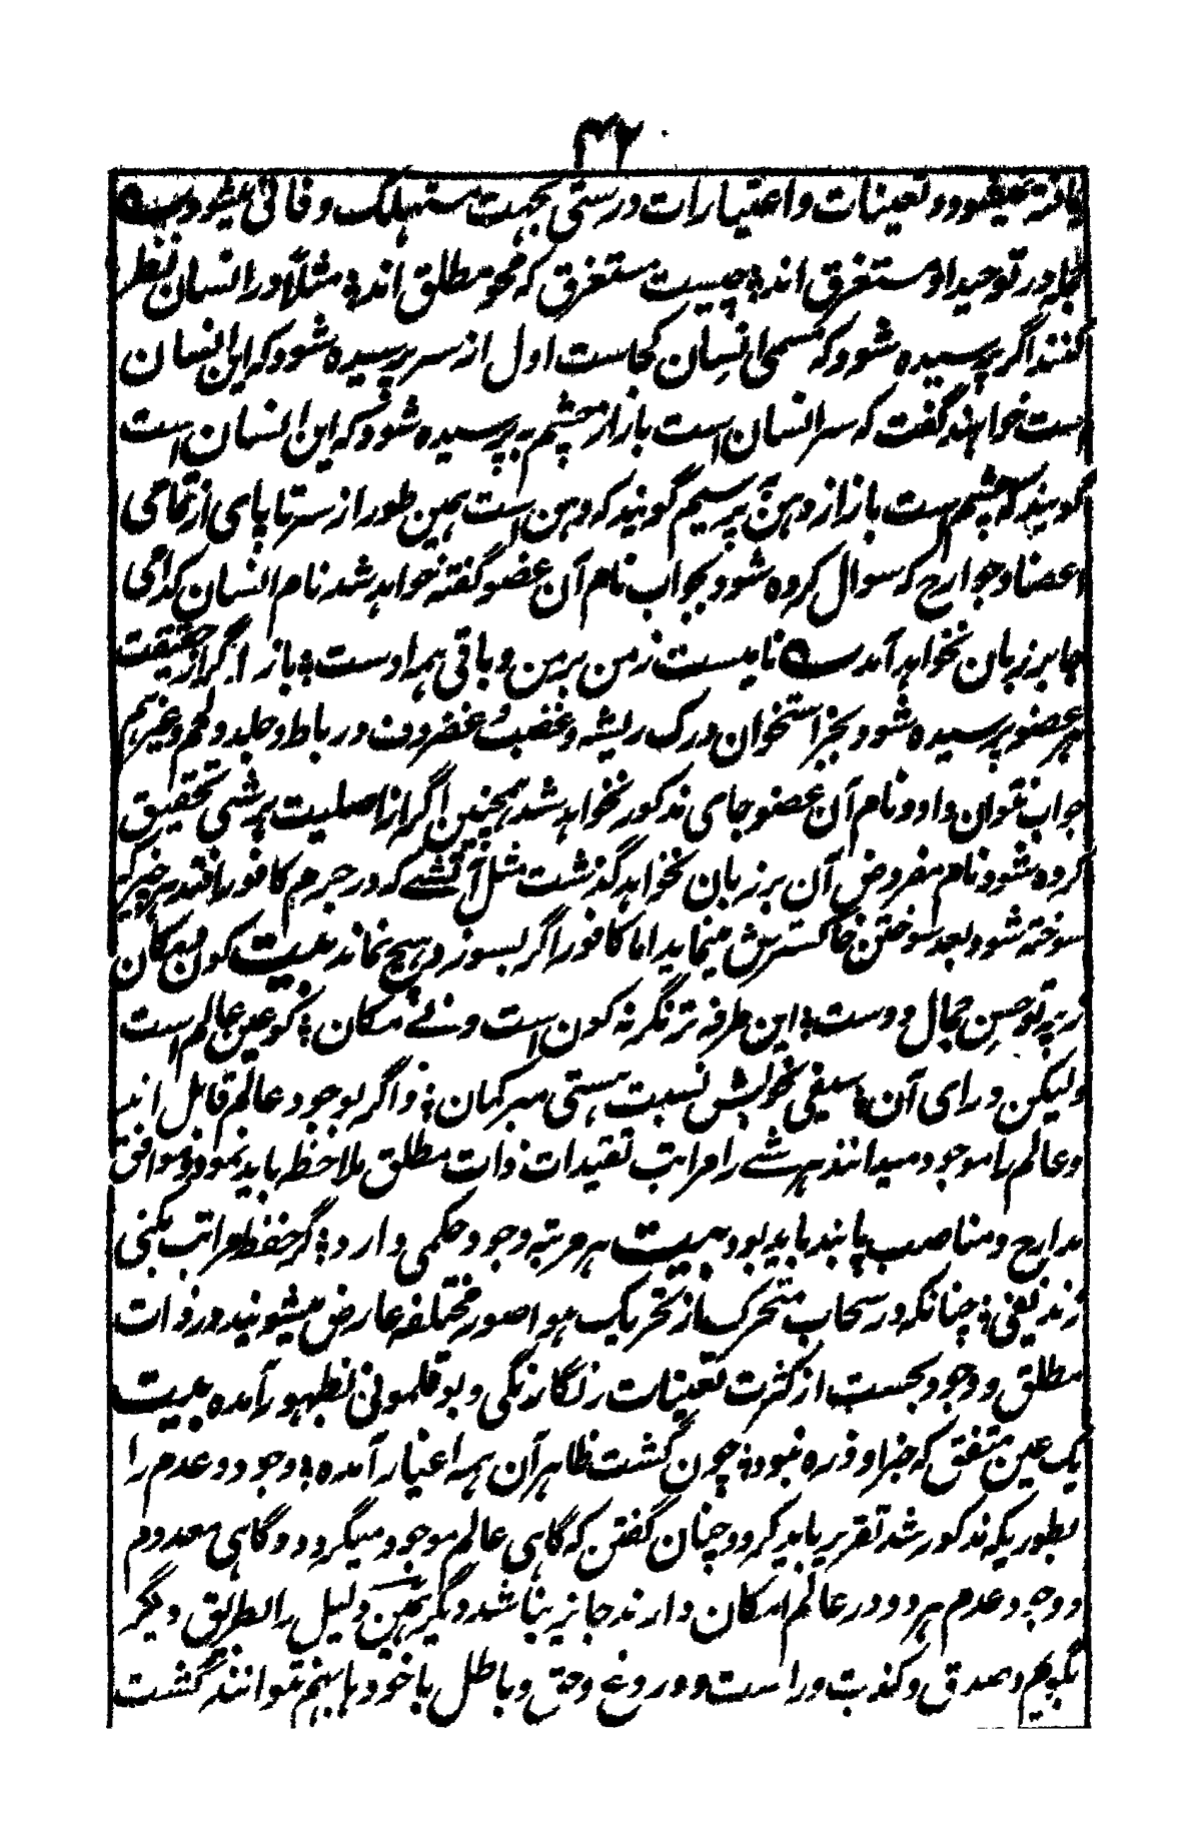 ۴۲
یافته میشود و تعینات و اعتبارات در ستی بجهت مستهلک و فانی میشود
جمله در توحید او مستغرق اند ؛ چیست مستغرق که محو مطلق اند ؛ مثلاً در انسان نظر
کنند اگر پرسیده شود که مسمی انسان کجاست اول از سر پرسیده شود که این انسان
است خواهند گفت که سر انسان است باز از چشم به پرسیده شود که این انسان است
گویند که چشم است باز از دهن پرسیم گویند که دهن است همین طور از سر تا پای از تمامی
اعضا و جوارح که سوال کرده شود بجواب نام آن عضو گفته خواهد شد نام انسان کدامی
جا بر زبان نخواهد آمد نامیست ز من بر من و باقی همه اوست ؛ باز اگر از حقیقت
هر عضو پرسیده شود بجز استخوان و رگ و ریشه و عصب و غضروف و رباط و جلد و لحم و غیرهم
جواب نتوان داد و نام آن عضو جای مذکور نخواهد شد همچنین اگر از اصلیت هر شی تحقیق
کرده شود نام مفروض آن بر زبان نخواهد گذشت مثل آتشے که در جرم کافور افتد هر چیز که
سوخته شود بعد سوختن خاکسترش مینماید اما کافور اگر بسوزد هیچ نماند بیت کون و مکان
ز پرتو حسن جمال دوست ؛ این طرفه تر نگر نه کون است و نے مکان ؛ گو عین عالم است
ولیکن ورای آن ؛ سیفی بخویش نسبت هستی مبر گمان ؛ و اگر بوجود عالم قابل اند
و عالم را موجود میدانند هر شے را مراتب تقیدات ذات مطلق ملاحظه باید نمود و موافق
مدارج و مناصب پابند باید بود بیت هر مرتبه وجود حکمی دارد ؛ گر حفظ مراتب نکنی
زندیقی ؛ چنانکه در سحاب متحرک از تحریک هوا صور مختلفه عارض میشوند در ذات
مطلق و وجود بحت از کثرت تعینات رنگارنگی و بوقلمونی بظهور آمده بیت
یک عین متفق که جز او ذره نبود ؛ چون گشت ظاهر آن همه اغیار آمده ؛ وجود و عدم را
بطوریکه مذکور شد تقریر باید کرد و چنان گفتن که گاهی عالم موجود میگردد و گاهی معدوم
و وجود و عدم هر دو در عالم امکان دارند جایز نباشد دیگر همین دلیل را بطریق دیگر
بگویم و صدق و کذب و راست و دروغ و حق و باطل با خود باهم نتوانند گشت